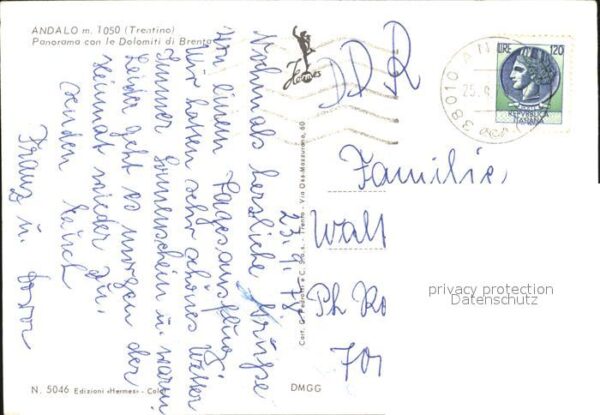 ANDALO m. 1050 (Trentino)
Panorama con le Dolomiti di Brenta
Hermes
23.9.78
Nochmals herzliche Grüße
von einem Tagesausflug.
Wir hatten sehr schönes Wetter
Immer Sonnenschein u. warm
Leider geht es morgen der
Heimat wieder zu.
senden Euch
Franz u.
DDR
LIRE 120
REPVBBLICA
ITALIANA
38010 AN
25.9
Familie
Walt
Ph Ko
701
privacy protection
Datenschutz
Cart. G. Pedrotti e C. s.n.c. - Trento - Via Oss-Mazzurana, 60
N. 5046 Edizioni «Hermes» - Col
DMGG